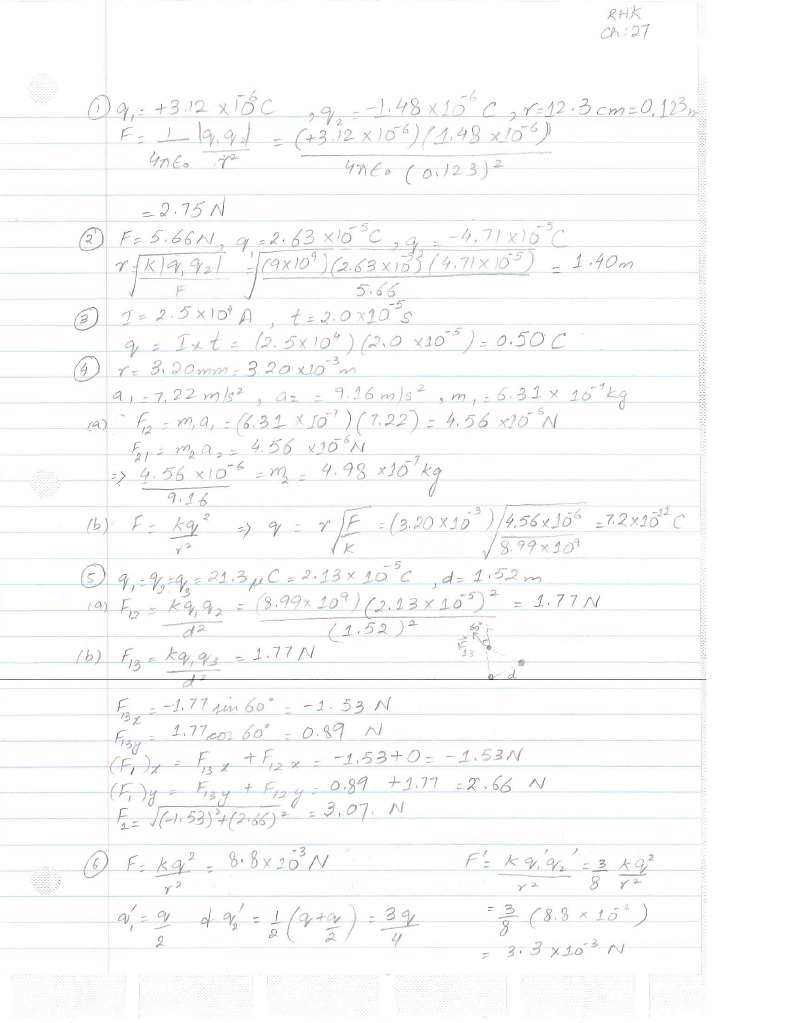 RHK
Ch: 27
① q₁ = +3.12 × 10⁻⁶ C , q₂ = -1.48 × 10⁻⁶ C , r = 12.3 cm = 0.123 m
F = 1/4πε₀ |q₁q₂|/r² = (+3.12 × 10⁻⁶)(1.48 × 10⁻⁶)/4πε₀ (0.123)²
= 2.75 N
② F = 5.66 N, q = 2.63 × 10⁻⁵ C, q = -4.71 × 10⁻⁵ C
r = √(k|q₁q₂|/F) = √((9×10⁹)(2.63 × 10⁻⁵)(4.71 × 10⁻⁵)/5.66) = 1.40 m
③ I = 2.5 × 10⁴ A , t = 2.0 × 10⁻⁵ s
q = I × t = (2.5 × 10⁴)(2.0 × 10⁻⁵) = 0.50 C
④ r = 3.20 mm = 3.20 × 10⁻³ m
a₁ = 7.22 m/s² , a₂ = 9.16 m/s² , m₁ = 6.31 × 10⁻⁷ kg
(a) F₁₂ = m₁a₁ = (6.31 × 10⁻⁷)(7.22) = 4.56 × 10⁻⁶ N
F₂₁ = m₂a₂ = 4.56 × 10⁻⁶ N
=> 4.56 × 10⁻⁶/9.16 = m₂ = 4.98 × 10⁻⁷ kg
(b) F = kq²/r² => q = r √(F/K) = (3.20 × 10⁻³) √(4.56 × 10⁻⁶/8.99 × 10⁹) = 7.2 × 10⁻¹¹ C
⑤ q₁ = q₂ = q₃ = 21.3 μC = 2.13 × 10⁻⁵ C , d = 1.52 m
(a) F₁₂ = kq₁q₂/d² = (8.99 × 10⁹)(2.13 × 10⁻⁵)²/(1.52)² = 1.77 N
(b) F₁₃ = kq₁q₃/d² = 1.77 N
60°
F₁₃
d
F₁₃ₓ = -1.77 sin 60° = -1.53 N
F₁₃y = 1.77 cos 60° = 0.89 N
(F₁)x = F₁₃x + F₁₂x = -1.53 + 0 = -1.53 N
(F₁)y = F₁₃y + F₁₂y = 0.89 + 1.77 = 2.66 N
F₂ = √((-1.53)² + (2.66)²) = 3.07 N
⑥ F = kq²/r² = 8.8 × 10⁻³ N
q₁' = q/2 & q₂' = 1/2 (q + q/2) = 3q/4
F' = kq₁'q₂'/r² = 3/8 kq²/r²
= 3/8 (8.8 × 10⁻³)
= 3.3 × 10⁻³ N